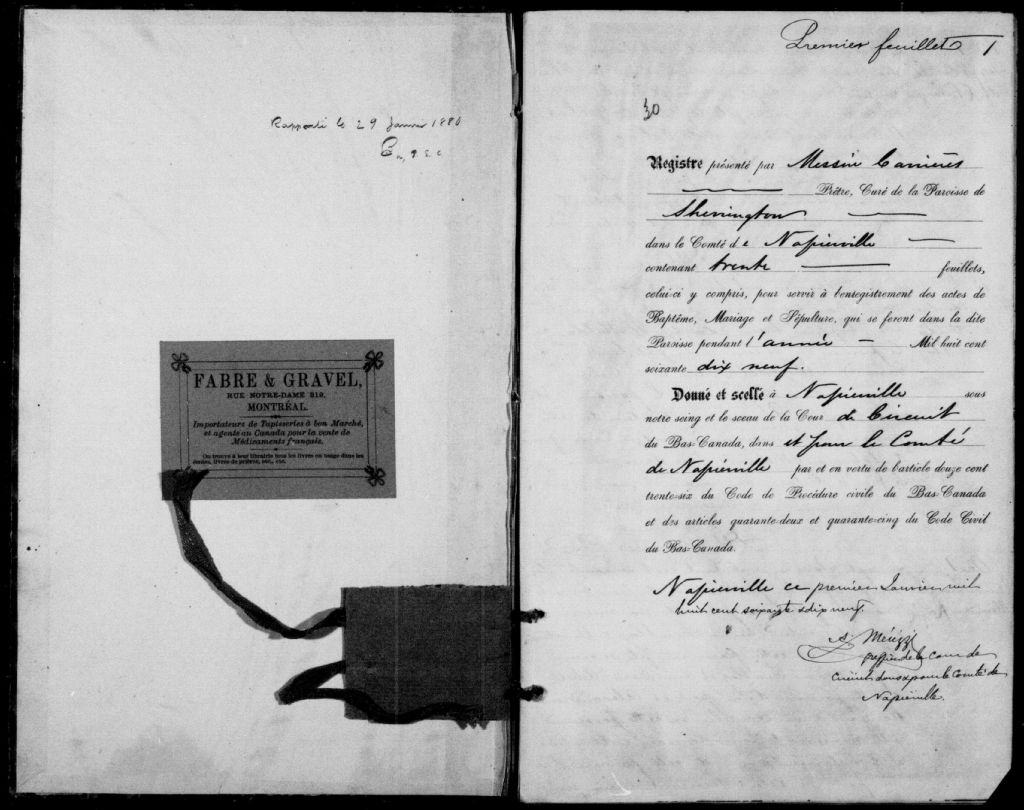 Rapporté le 29 Janvier 1880
FABRE & GRAVEL,
RUE NOTRE-DAME 219,
MONTRÉAL.
Importateurs de Tapisseries à bon Marché,
et agents au Canada pour la vente de
Médicaments français.
On trouve à leur librairie tous les livres en usage dans les
écoles, livres de prières, etc., etc.
Premier feuillet 1
30
Registre présenté par Messire Carrières
Prêtre, Curé de la Paroisse de
Sherrington
dans le Comté de Napierville
contenant trente feuillets,
celui-ci y compris, pour servir à l'enregistrement des actes de
Baptême, Mariage et Sépulture, qui se feront dans la dite
Paroisse pendant l'année Mil huit cent
soixante dix neuf.
Donné et scellé à Napierville sous
notre seing et le sceau de la Cour de Circuit
du Bas-Canada, dans et pour le Comté
de Napierville par et en vertu de l'article douze cent
trente-six du Code de Procédure civile du Bas-Canada
et des articles quarante-deux et quarante-cinq du Code Civil
du Bas-Canada.
Napierville ce premier Janvier mil
huit cent soixante & dix neuf.
greffier de la Cour de
Circuit dans & pour le Comté de
Napierville.